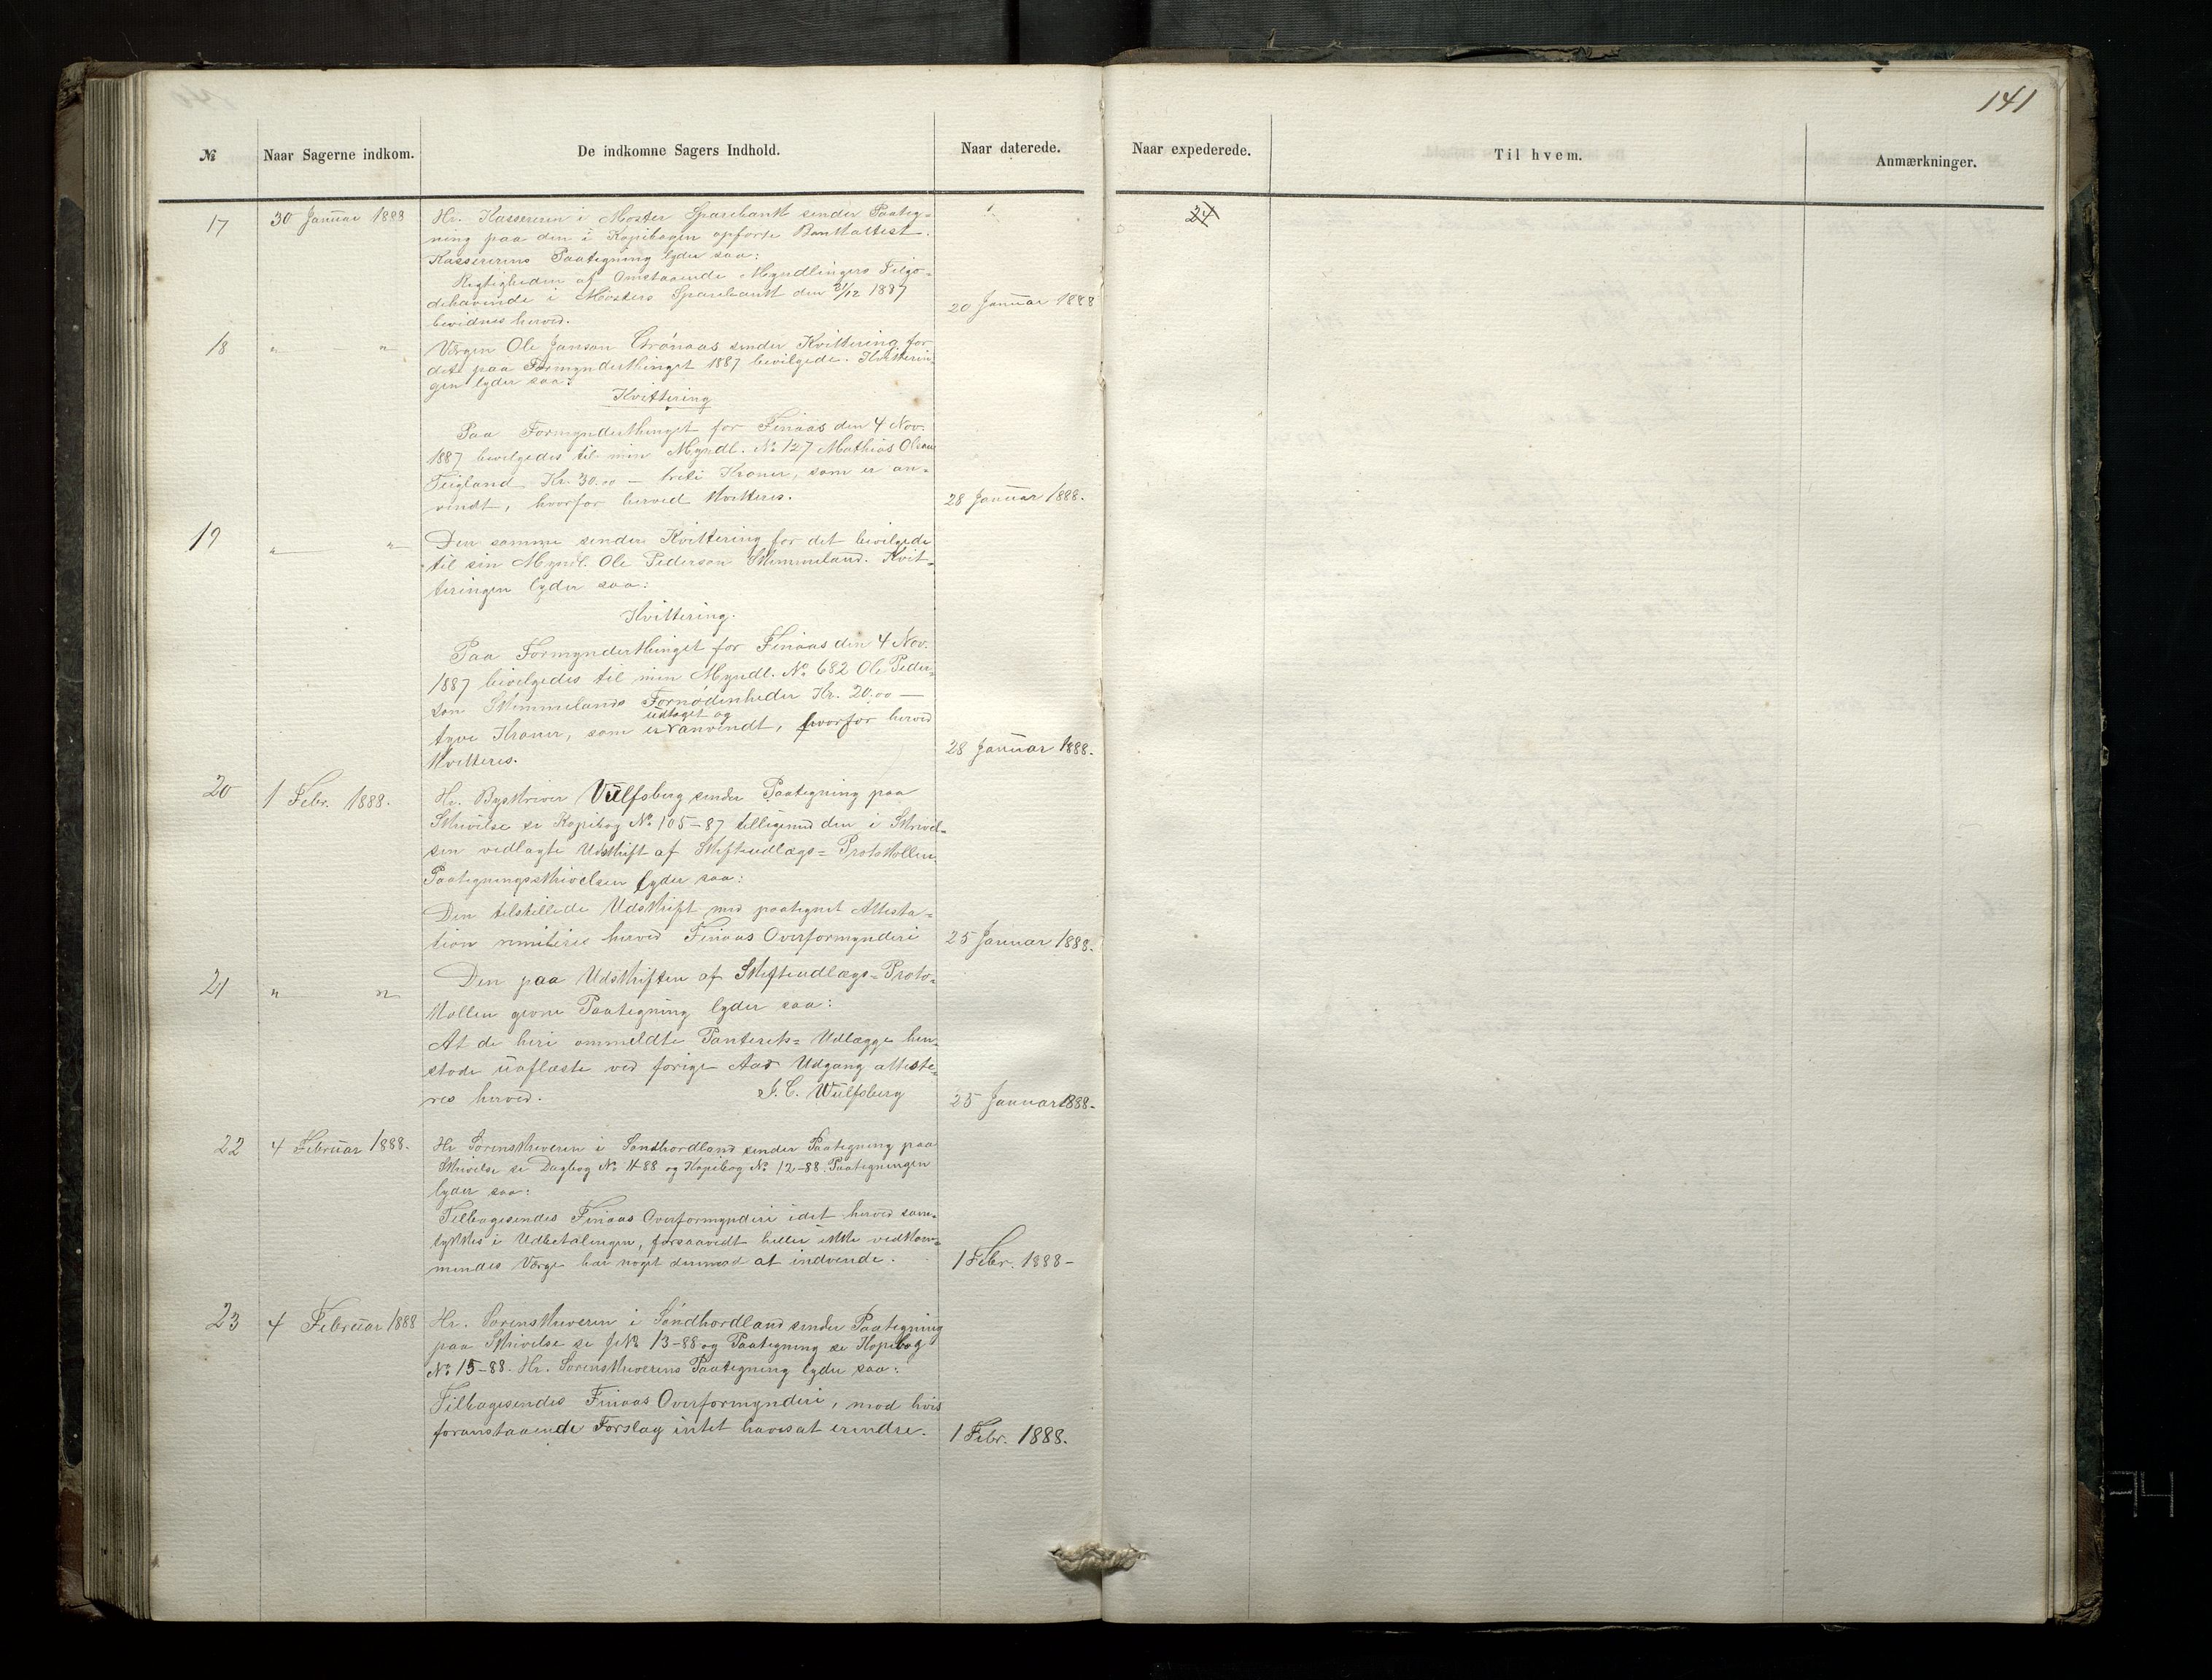 141
№ Naar Sagerne indkom. De indkomne Sagers Indhold. Naar daterede. Naar expederede. Til hvem. Anmærkninger.
17 30 Januar 1888 Hr. Kassereren i Moster Sparebank sender Paateg-
ning paa den i Kopibogen opførte Bankattest.
Kassererens Paategning lyder saa:
Rigtigheden af Omstaaende Myndlingers Tilgo-
dehavende i Mosters Sparebank den 31/12 1887
bevidnes herved. 20 Januar 1888
24
18 " " Værgen Ole Janson Grönaas sender Kvittering for
det paa Formynderthinget 1887 bevilgede. Kvitterin-
gen lyder saa:
Kvittering
Paa Formynderthinget for Finaas den 4 Nov.
1887 bevilgedes til min Myndl. № 127 Mathias Olsen
Teigland Kr. 30.00 — treti Kroner, som er an-
vendt, hvorfor herved kvitteres. 28 Januar 1888.
19 " " Den samme sender Kvittering for det bevilgede
til sin Myndl. Ole Pederson Skimmeland. Kvit-
teringen lyder saa:
Kvittering.
Paa Formynderthinget for Finaas den 4 Nov.
1887 bevilgedes til min Myndl. № 682 Ole Peder-
son Skimmelands Fornødenheder Kr. 20.00 —
udtaget og
tyve Kroner, som er anvendt, hvorfor herved
kvitteres. 28 Januar 1888.
20 1 Febr. 1888. Hr. Byskriver Wulfsberg sender Paategning paa
Skrivelse se Kopibog № 105-87 tilligemed den i Skrivel-
sen vedlagte Udskrift af Skifteudlægs-Protokollen.
Paategningsskrivelsen lyder saa:
Den tilstillede Udskrift med paategnet Attesta-
tion remiteres herved Finaas Overformynderi 25 Januar 1888.
21 " " Den paa Udskriften af Skifteudlægs-Proto-
kollen givne Paategning lyder saa:
At de heri ommeldte Panterets-Udlægge hen-
stode uaflæste ved forige Aars Udgang atteste-
res herved. J. C. Wulfsberg 25 Januar 1888.
22 4 Februar 1888. Hr Sorenskriveren i Søndhordland sender Paategning paa
Skrivelse se Dagbog № 4-88 og Kopibog № 12-88. Paategningen
lyder saa:
Tilbagesendes Finaas Overformynderi idet herved sam-
tykkes i Udbetalingen, forsaavidt heller ikke vedkom-
mendes Værge har noget dermod at indvende. 1 Febr. 1888-
23 4 Februar 1888 Hr. Sorenskriveren i Søndhordland sender Paategning
paa Skrivelse se J№ 13-88 og Paategning se Kopibog
№ 15-88. Hr. Sorenskriverens Paategning lyder saa:
Tilbagesendes Finaas Overformynderi, mod hvis
foranstaaende Forslag intet haves at erindre. 1 Febr. 1888.